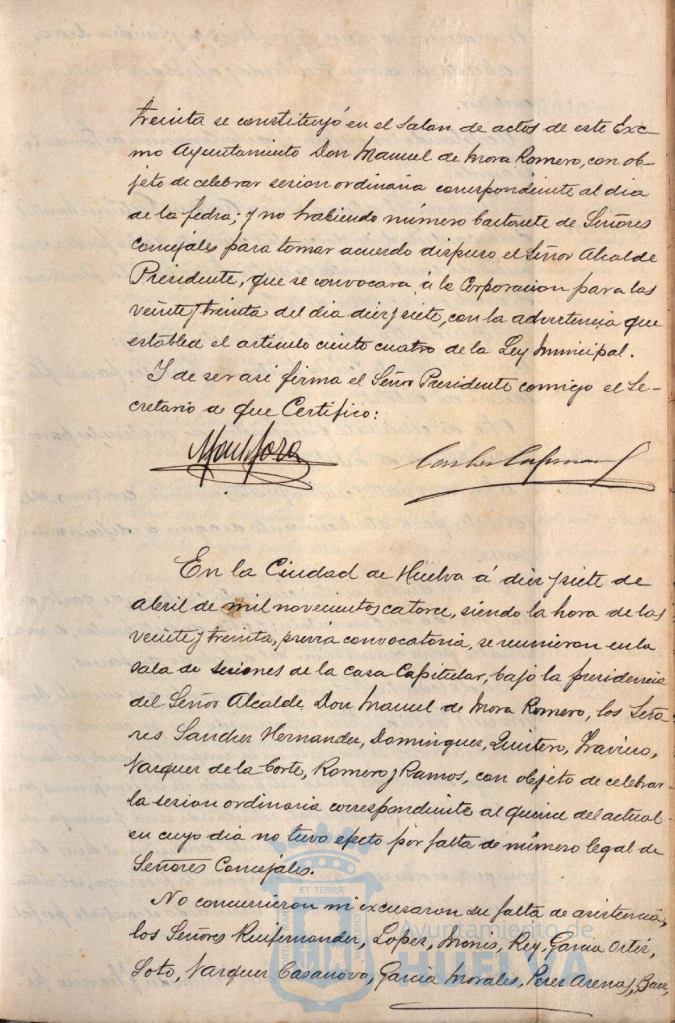 treinta se constituyó en el salon de actos de este Exc-
mo Ayuntamiento Don Manuel de Mora Romero, con ob-
jeto de celebrar sesion ordinaria correspondiente al dia
de la fecha; y no habiendo número bastante de Señores
concejales para tomar acuerdo dispuso el Señor Alcalde
Presidente, que se convocara á la Corporacion para las
veinte y treinta del dia diez y siete, con la advertencia que
establece el articulo ciento cuatro de la Ley Municipal.
Y de ser asi firma el Señor Presidente conmigo el Se-
cretario de que Certifico:
En la Ciudad de Huelva á diez y siete de
abril de mil novecientos catorce, siendo la hora de las
veinte y treinta, previa convocatoria, se reunieron en la
sala de sesiones de la casa Capitular, bajo la presidencia
del Señor Alcalde Don Manuel de Mora Romero, los Seño-
res Sanchez Hernandez, Dominguez, Quintero, Travieso,
Vazquez de la Corte, Romero y Ramos, con objeto de celebrar
la sesion ordinaria correspondiente al quince del actual
en cuyo dia no tuvo efecto por falta de número legal de
Señores Concejales.
No concurrieron ni excusaron su falta de asistencia,
los Señores Ruifernandez, Lopez, Mones, Rey, Garcia Ortiz,
Soto, Vazquez Casanova, Garcia Morales, Perez Arenas,
ET TERRÆ
Ayuntamiento de
HUELVA